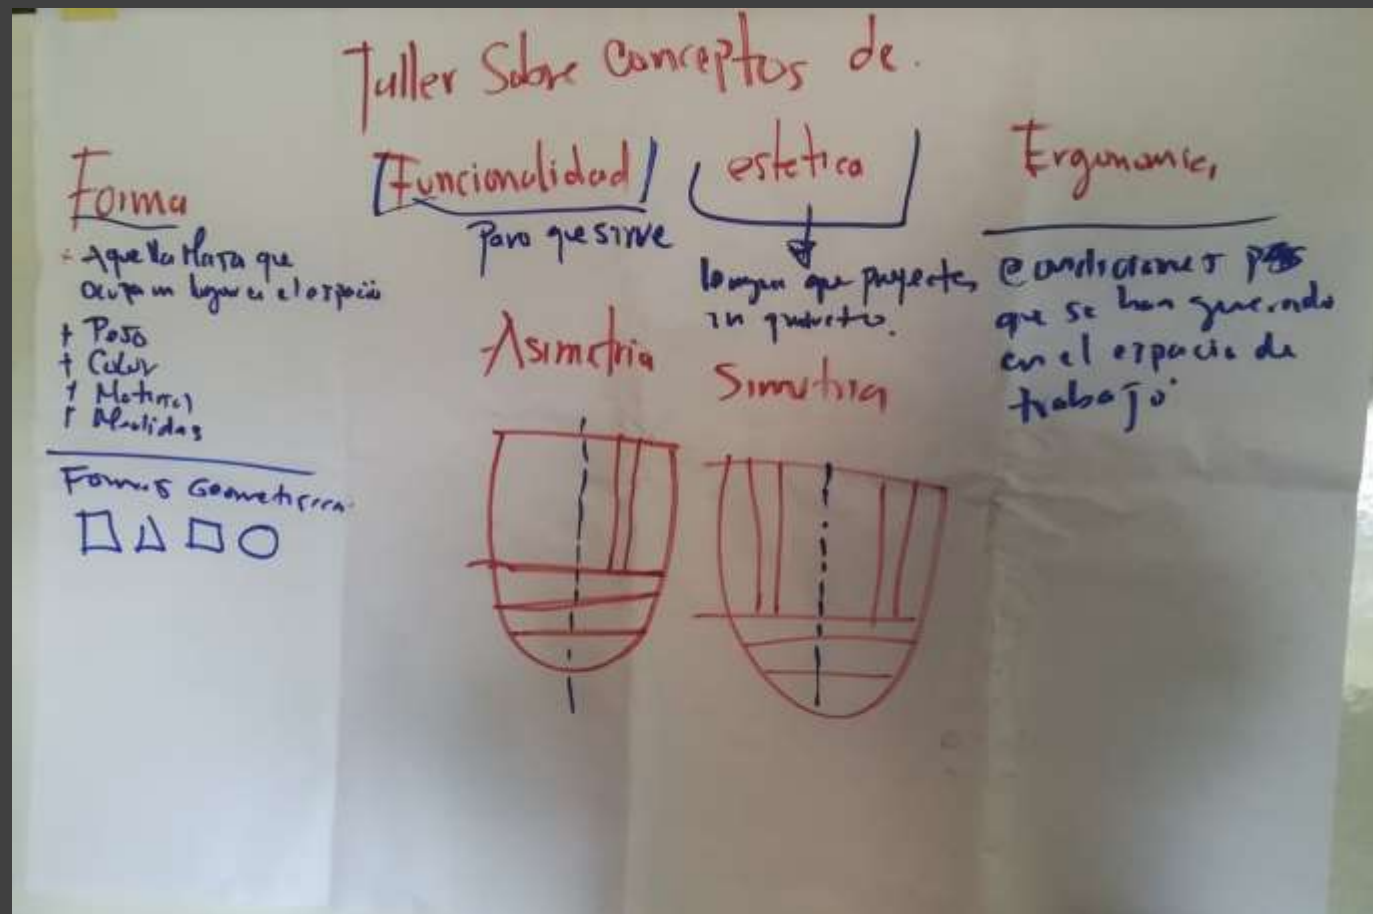 Taller Sobre Conceptos de.
Forma
- Aquella Masa que
ocupa un lugar en el espacio
+ Peso
+ Color
+ Material
+ Medidas
Formas Geometricas.
Funcionalidad
Para que sirve
estetica
Imagen que proyecta
un producto.
Ergonomia
Condiciones
que se han generado
en el espacio de
trabajo
Asimetria
Simetria